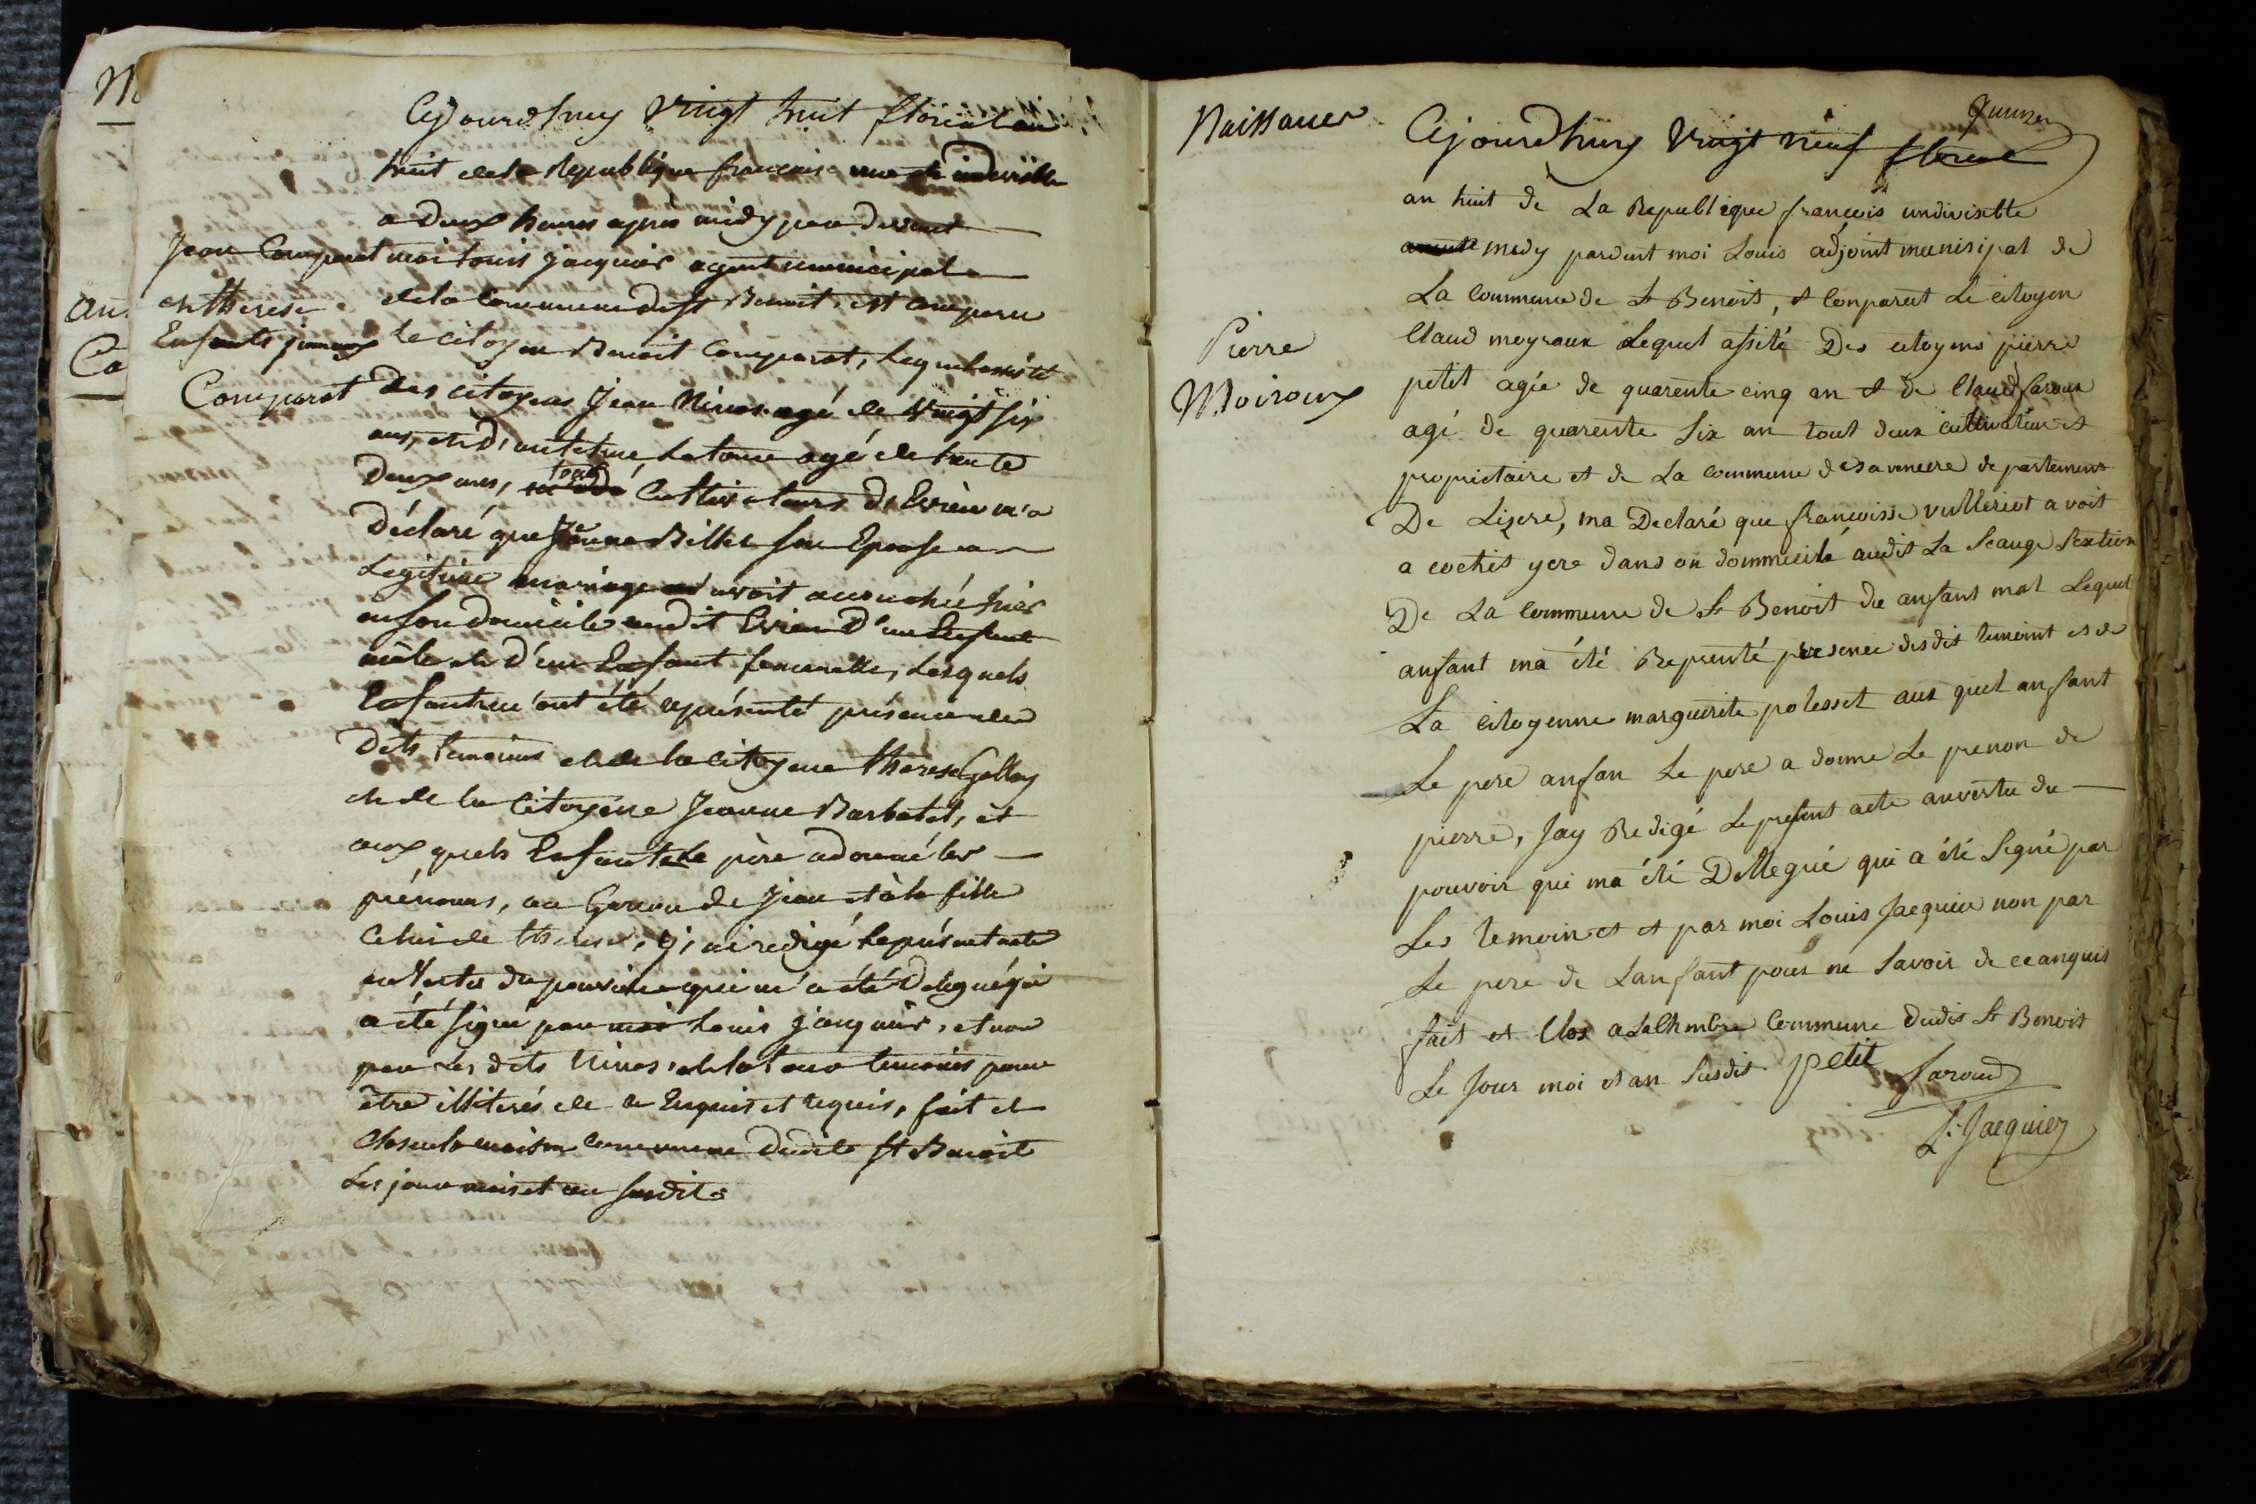 Cejourdhuy vingt huit floréal an
huit de la Republique francaise une et indivisible
a deux heures après midy par devant
Jean Comparat moi Louis jacquier agent municipal
et therese de la commune de St Benoit, est comparu
Enfants jumeaux le citoyen Benoit Comparat, lequel assisté
Comparat des citoyens Jean Niros agé de vingt six
ans, et d' antoine Latour agé de trente
Deux ans, tous cultivateurs d'Evrieu m'a
Déclaré que Jeanne Billet son Epouse en
Legitime mariage avoit accouchée hier
en son domicile audit Evrieu D'un Enfant
mâle et D'un Enfant femenelle, Lesquels
Enfants m'ont été représenté présence des
Dits temoins et de la citoyene therese Gallay
et de la Citoyene Jeanne Barbatet, et
aux quels Enfants Le père a donné les
prénoms, au Garcon de Jean et à la fille
Celui de therese, j'ai redigé le présent acte
en Vertu du pouvoir qui m'a été Délegué qui
a été signé par moi Louis jacquier, et non
par Les dits Niros et Latour temoins pour
être illiterés de ce Enquis et requis, fait et
clos en la maison commune dudit St Benoit
Les jour mois et an susdits
Naissances
quinze
Cejourdhuy Vingt neuf floreal
an huit de La Republique francois undivisible
midy pardevent moi Louis adjoint munisipal de
La commune de St Benoit, et Conparut Le citoyen
Pierre
Moiroux
Claud moyroux Lequel assité Des citoyens pierre
petit agée de quarente cinq an et de Claud faroux
agé de quarente Six an tout deux cultivateur et
propriétaire et de La commune desaveniere departement
De Lizere, ma Declaré que francoisse vulleriot avoit
a cochés yere dans on dommicile audit La Seauge Sextion
De La Commune de St Benoit du anfant mal Lequel
anfant ma été Represnté presence desdit temoint et de
La citoyenne marguerite polosset aus quel anfant
Le pere anfan Le pere a donne Le prenon de
pierre, Jay Redigé Le present acte anvertu du
pouvoir qui ma été Dellegué qui a été Segné par
Les temoin et et par moi Louis Jacquier non par
Le pere de Lanfant pour ne Savoir de ce anquis
fait et Clos a La Chmbre Commune dudit St Benoit
Le Jour moi et an Susdit petit faroud
L. Jacquier